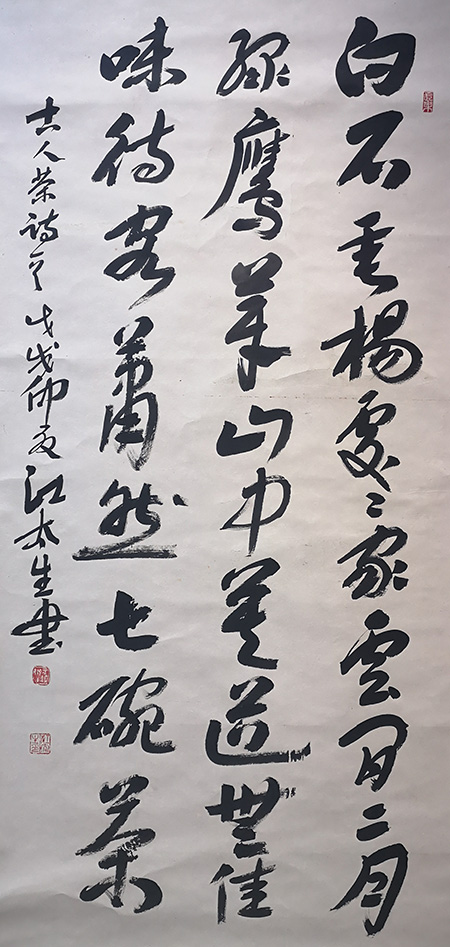 白石垂楊處々家雲間二月
綠鷹芽山中莫道無佳
味待客蕭然七碗茶
古人茶詩戊戌仲夏江太生書